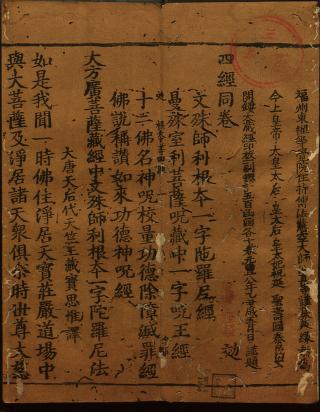 福州東禪等覺院住持傳法慧空大師沖真謹募眾緣恭為
今上皇帝太皇太后皇太后皇太妃祝延聖壽國泰民安
開鏤大藏經印板一副計五百餘函元豐八年乙丑歲五月日謹題
四經同卷 効
文殊師利根本一字陀羅尼經
曼殊室利菩薩呪藏中一字呪王經
十二佛名神呪校量功德除障滅罪經
佛說稱讚如來功德神呪經
大方廣菩薩藏經中文殊師利根本一字陀羅尼法
大唐天后代天竺三藏寶思惟譯
如是我聞一時佛住淨居天寶莊嚴道場中
與大菩薩及淨居諸天眾俱尒時世尊大慈